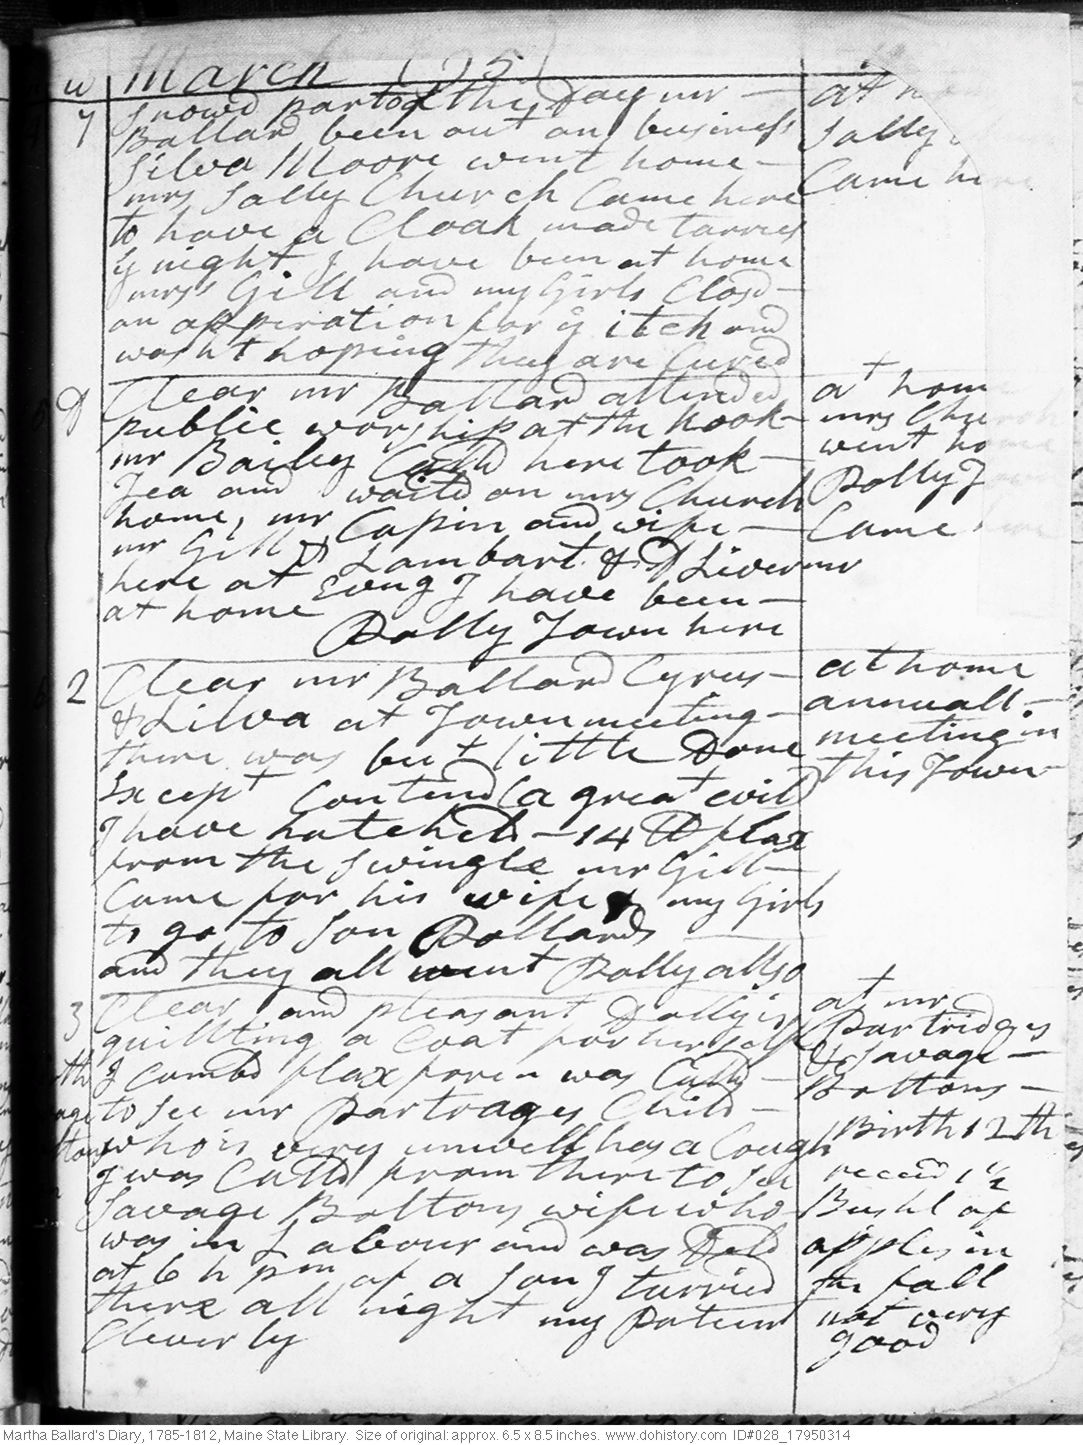 March 1795
7
Snowd part of the Day mr
Ballard been out on business
Silva Moore went home
mrs Sally Church Came here
to have a Cloak made tarries
ye night I have been at home
mrss Gill and my Girls Closd
an opperation for ye itch and
washt hoping they are Cured
at
Sally
Came here
D
Clear mr Ballard attended
public worship at the hook
mr Bailey Calld here took
Tea and waited on mrs Church
home, mr Capin and wife
mr Gill Dr Lambart & D Livermr
here at Evng I have been
at home
Dolly Town here
at home
mrs Church
went home
Dolly T
Came here
2
Clear mr Ballard Cyrus
& Lilva at Town meeting
there was but little Done
Except Contend (a great evil)
I have hatcheld 14 lb flax
from the swingle mr Gill
Came for his wife & my Girls
to go to son Pollards
and they all went Dolly allso
at home
annuall
meeting in
this Town
3
Clear and pleasant Dolly is
quillting a Coat for her self
I Combd flax foren was Calld
to see mr Partrages Child
who is very unwell has a Cough
I was Calld from there to see
Savage Boltons wife who
was in Labour and was Deld
at 6 h pm of a son I tarried
there all night my Patient
Cleverly
at mr
Partridges
& Savage
Boltons
Birth 12th
receivd 1 1/2
Bushl of
apples in
the fall
not very
good
Martha Ballard's Diary, 1785-1812, Maine State Library. Size of original: approx. 6.5 x 8.5 inches. www.dohistory.com ID#028_17950314